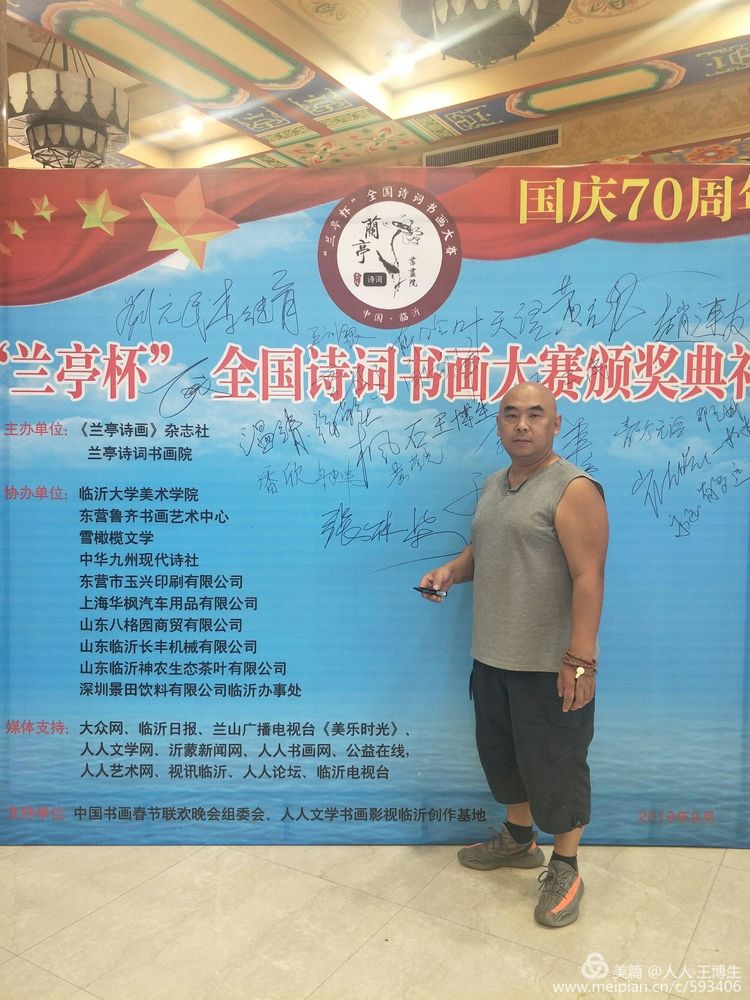 国庆70周年
"兰亭杯"全国诗词书画大赛
蘭亭
書畫院
诗词
中国·临沂
"兰亭杯"，全国诗词书画大赛颁奖典礼
王博生
温靖
潘欣
主办单位：《兰亭诗画》杂志社
兰亭诗词书画院
协办单位：临沂大学美术学院
东营鲁齐书画艺术中心
雪橄榄文学
中华九州现代诗社
东营市玉兴印刷有限公司
上海华枫汽车用品有限公司
山东八格园商贸有限公司
山东临沂长丰机械有限公司
山东临沂神农生态茶叶有限公司
深圳景田饮料有限公司临沂办事处
媒体支持：大众网、临沂日报、兰山广播电视台《美乐时光》、
人人文学网、沂蒙新闻网、人人书画网、公益在线，
人人艺术网、视讯临沂、人人论坛、临沂电视台
支持单位：中国书画春节联欢晚会组委会、人人文学书画影视临沂创作基地
2019年9月
美篇 @人人·王博生
www.meipian.cn/c/593406